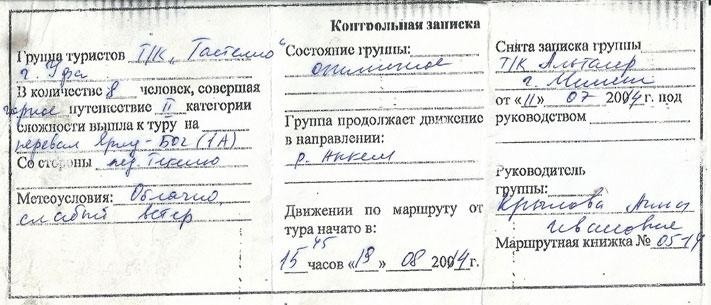 Контрольная записка
Группа туристов Т/К „Гастелло"
г. Уфа
В количестве 8 человек, совершая
горное путешествие II категории
сложности вышла к туру на
перевал Ярлу-Боч (1А)
Со стороны пер. Текелю
Метеоусловия: Облачно,
слабый ветер
Состояние группы:
отличное
Группа продолжает движение
в направлении:
р. Аккем
Движении по маршруту от
тура начато в:
15 45 часов «19» 08 2004г.
Снята записка группы
Т/К
г.
от «11» 07 2004г. под
руководством
Руководитель
группы:
Крылова Анна
Ивановна
Маршрутная книжка № 0514